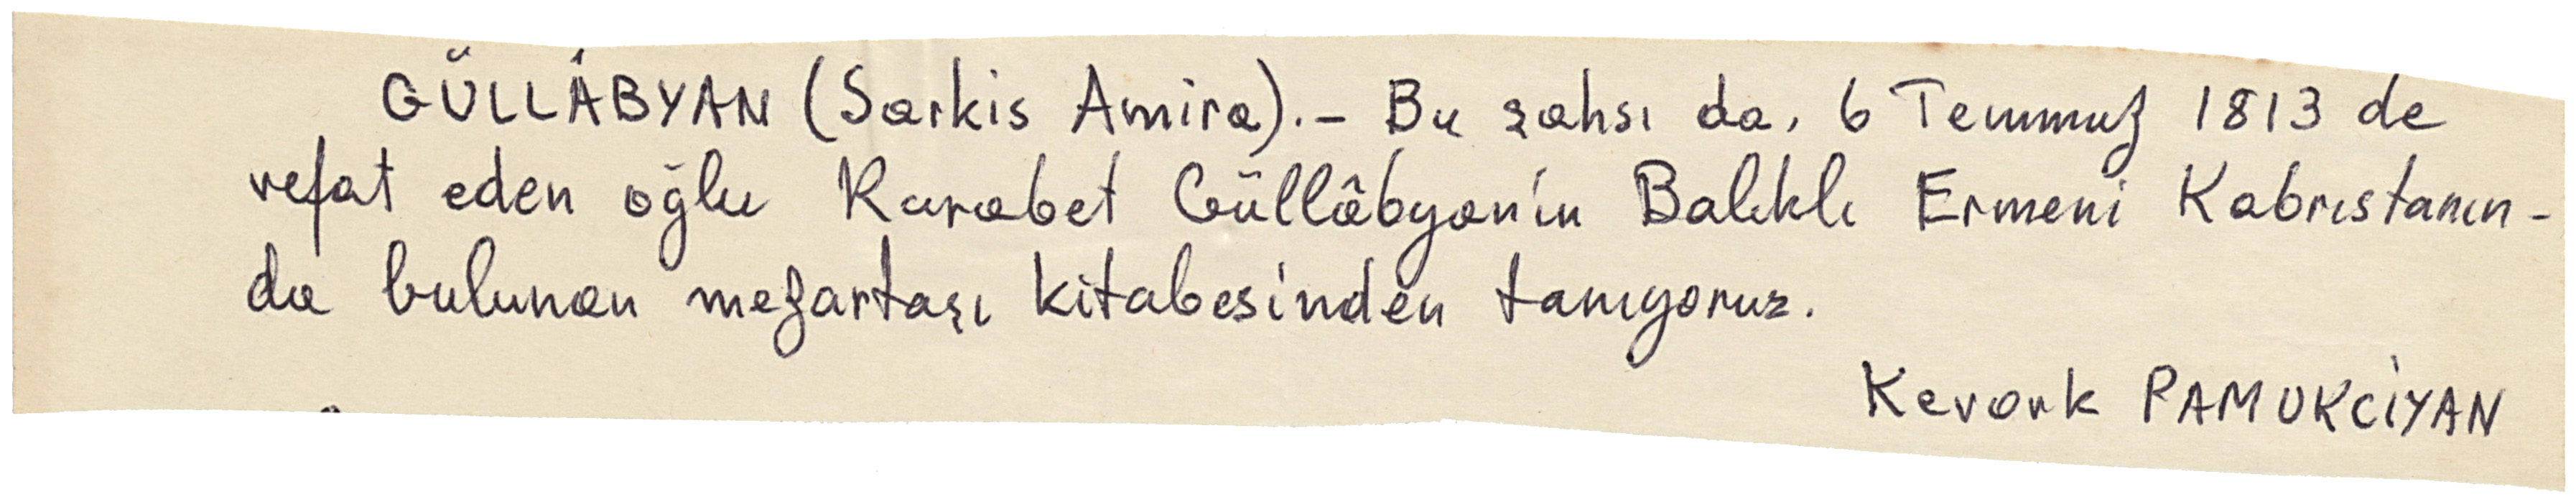 GÜLLÂBYAN (Sarkis Amira).- Bu şahsı da, 6 Temmuz 1813 de
vefat eden oğlu Karabet Güllâbyan'ın Balıklı Ermeni Kabrıstanın-
da bulunan mezartaşı kitabesinden tanıyoruz.
Kevork PAMUKCİYAN